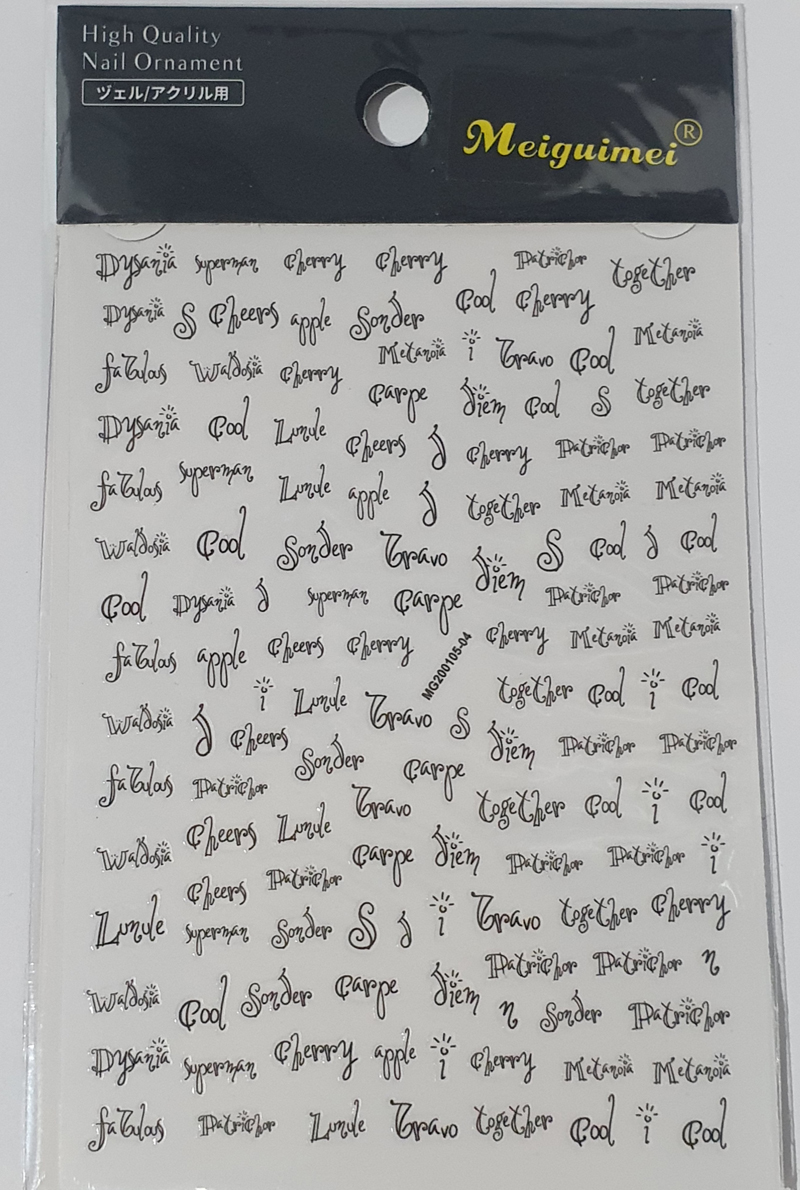 High Quality
Nail Ornament
ヅェル/アクリル用
Meiguimei®
Dysania superman Cherry Cherry Patrichor together
Dysania S Cheers apple Sonder Cool Cherry
fabulous Waldosia Cherry Metanoia i Bravo Cool Metanoia
Dysania Cool Lunule Carpe diem Cool S together
Cheers d Cherry Patrichor Patrichor
fabulous superman Lunule apple d together Metanoia Metanoia
Waldosia Cool Sonder Bravo diem S Cool d Cool
Cool Dysania d superman Carpe Patrichor Patrichor
fabulous apple Cheers Cherry Cherry Metanoia Metanoia
MG200105-04
i Lunule together Cool i Cool
Waldosia d Cheers Bravo S diem Patrichor Patrichor
fabulous Patrichor Sonder Carpe
Cheers Lunule Bravo together Cool i Cool
Waldosia Carpe diem Patrichor Patrichor i
Cheers Patrichor
Lunule superman Sonder S d i Bravo together Cherry
Patrichor Patrichor n
Waldosia Cool Sonder Carpe diem n Sonder Patrichor
Dysania superman Cherry apple i Cherry Metanoia Metanoia
fabulous Patrichor Lunule Bravo together Cool i Cool